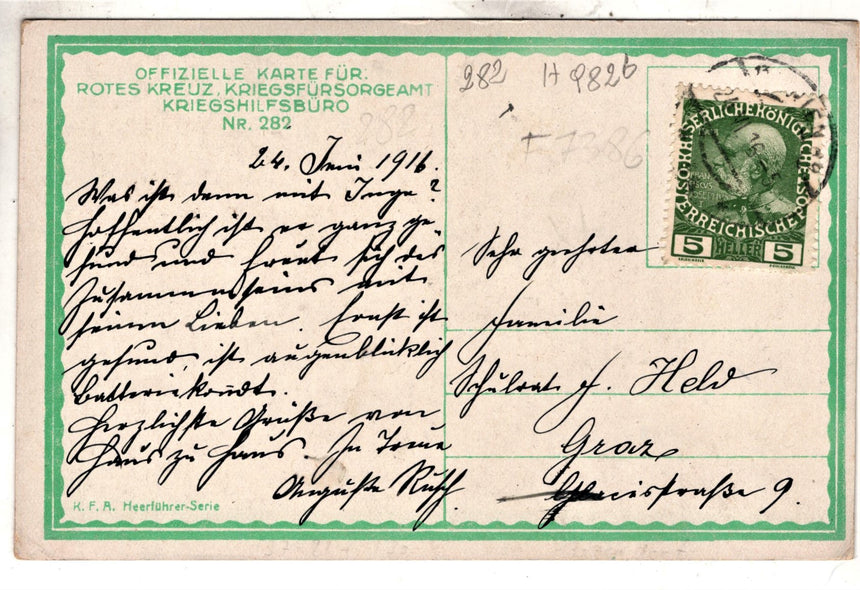 OFFIZIELLE KARTE FÜR:
ROTES KREUZ, KRIEGSFÜRSORGEAMT
KRIEGSHILFSBÜRO
NR. 282
282
24. Juni 1916.
Was ist denn mit Inge?
Hoffentlich ist er ganz ge-
sund und freut sich des
Zusammenseins mit
seinen Lieben. Ernst ist
gesund, ist augenblicklich
Batteriekomdt.
Herzlichste Grüße von
Haus zu Haus. In Treue
Auguste Rusch.
K. F. A. Heerführer-Serie
282 H 9826
F 7386
KAISERLICHE KÖNIGLICHE ÖSTERREICHISCHE POST
5 HELLER 5
Sehr geehrten
Familie
Schulrat f. Held
Graz
Glacisstraße 9.